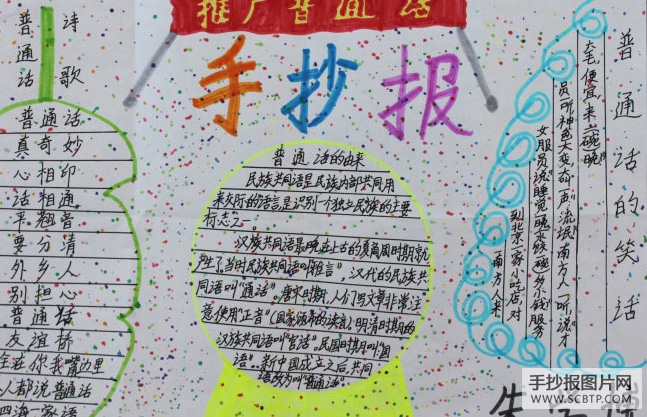 推广普通话
手抄报
普通话诗歌
普通话
真奇妙
心相印
话相通
平翘音
要分清
外乡人
别担心
普通话
友谊桥
全在你我嘴边里
人都说普通话
四海一家语
普通话的由来
民族共同语是民族内部共同用
来交际的语言是识别一个独立民族的主要
标志之一
汉族共同语最晚在上古的夏商周时期就
产生了,当时民族共同语叫"雅言",汉代的民族共
同语叫"通话"。唐宋时期,人们写文章非常注
意使用"正音"(国家颁布的读音)明清时期的
汉族共同语叫"官话"。民国时期叫"国
语"。新中国成立之后,共同
语改为叫"普通话"
普通话的笑话
南方人来
到北京一家小吃店,对
女服员说"睡觉一晚
多少钱服务
员听神色大变
一声"流氓"南方人一听说"才
便宜来二碗
手抄报图片网
WWW.SCBTP.COM